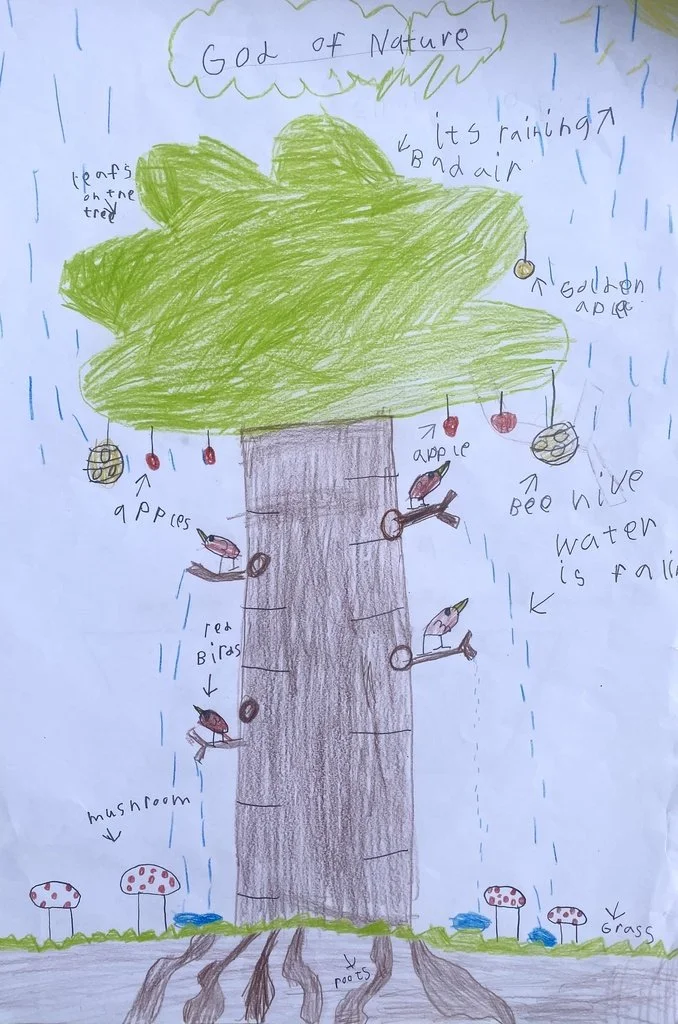 God of Nature
its raining
Bad air
leafs
on the
tree
Golden
aple
apple
apples
Bee hive
water
is fali
red
Birds
mushroom
Grass
roots